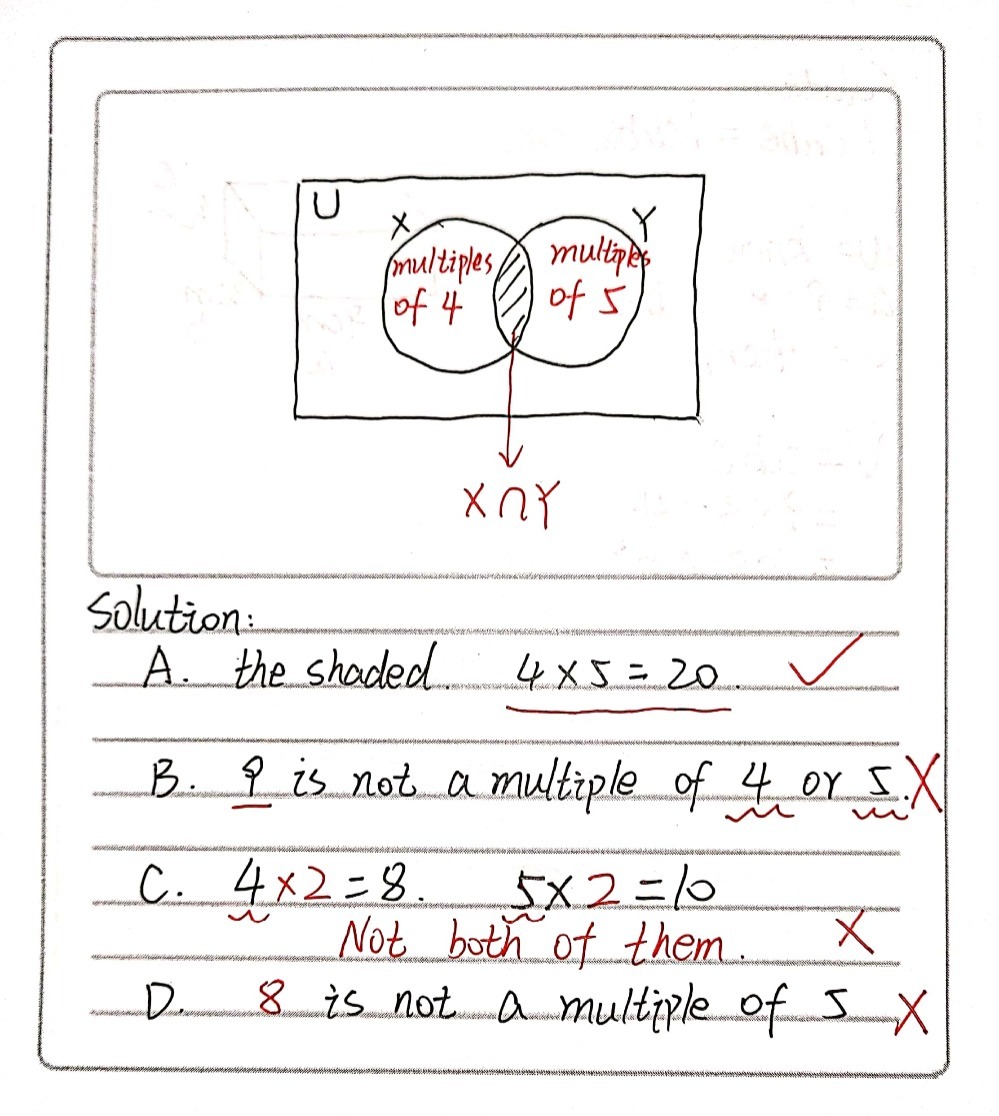 U
X
Y
multiples
of 4
multiples
of 5
X∩Y
Solution:
A. the shaded. 4×5=20. ✓
B. 9 is not a multiple of 4 or 5. X
C. 4×2=8. 5×2=10
Not both of them. X
D. 8 is not a multiple of 5 X